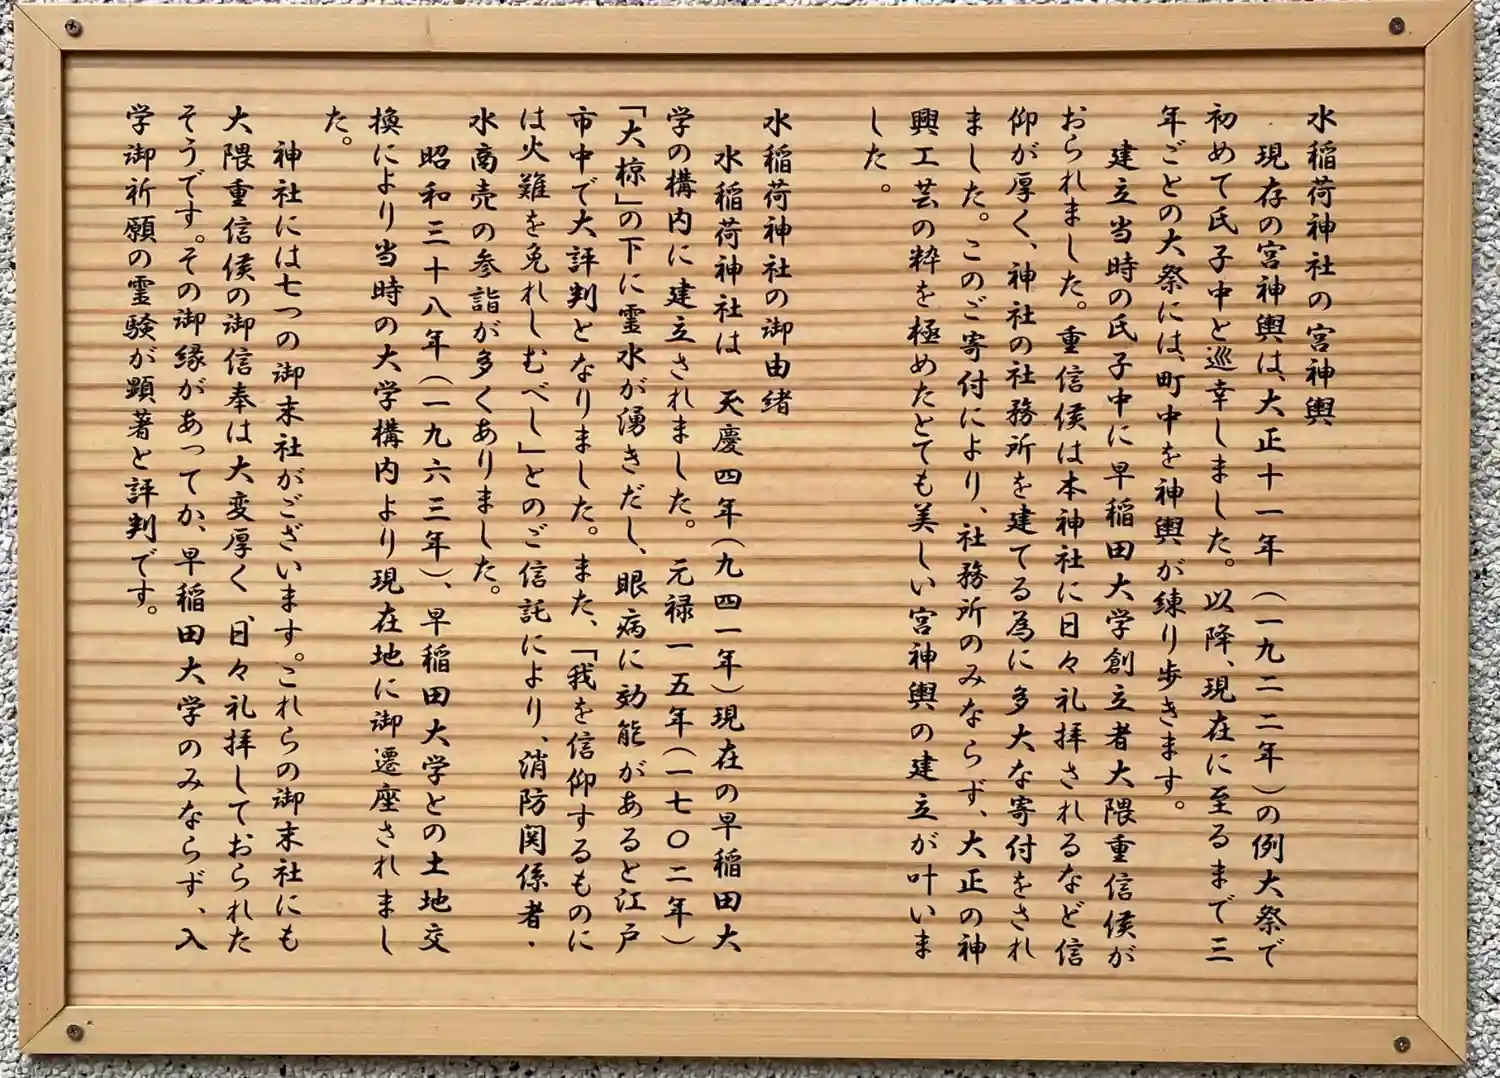 水稲荷神社の宮神輿
現存の宮神輿は、大正十一年（一九二二年）の例大祭で
初めて氏子中と巡幸しました。以降、現在に至るまで三
年ごとの大祭には、町中を神輿が練り歩きます。
建立当時の氏子中に早稲田大学創立者大隈重信侯が
おられました。重信侯は本神社に日々礼拝されるなど信
仰が厚く、神社の社務所を建てる為に多大な寄付をされ
ました。このご寄付により、社務所のみならず、大正の神
興工芸の粋を極めたとても美しい宮神輿の建立が叶いま
した。
水稲荷神社の御由緒
水稲荷神社は 天慶四年（九四一年）現在の早稲田大
学の構内に建立されました。元禄一五年（一七〇二年）
「大椋」の下に霊水が湧きだし、眼病に効能があると江戸
市中で大評判となりました。また、「我を信仰するものに
は火難を免れしむべし」とのご信託により、消防関係者・
水商売の参詣が多くありました。
昭和三十八年（一九六三年）、早稲田大学との土地交
換により当時の大学構内より現在地に御遷座されまし
た。
神社には七つの御末社がございます。これらの御末社にも
大隈重信侯の御信奉は大変厚く、日々礼拝しておられた
そうです。その御縁があってか、早稲田大学のみならず、入
学御祈願の霊験が顕著と評判です。